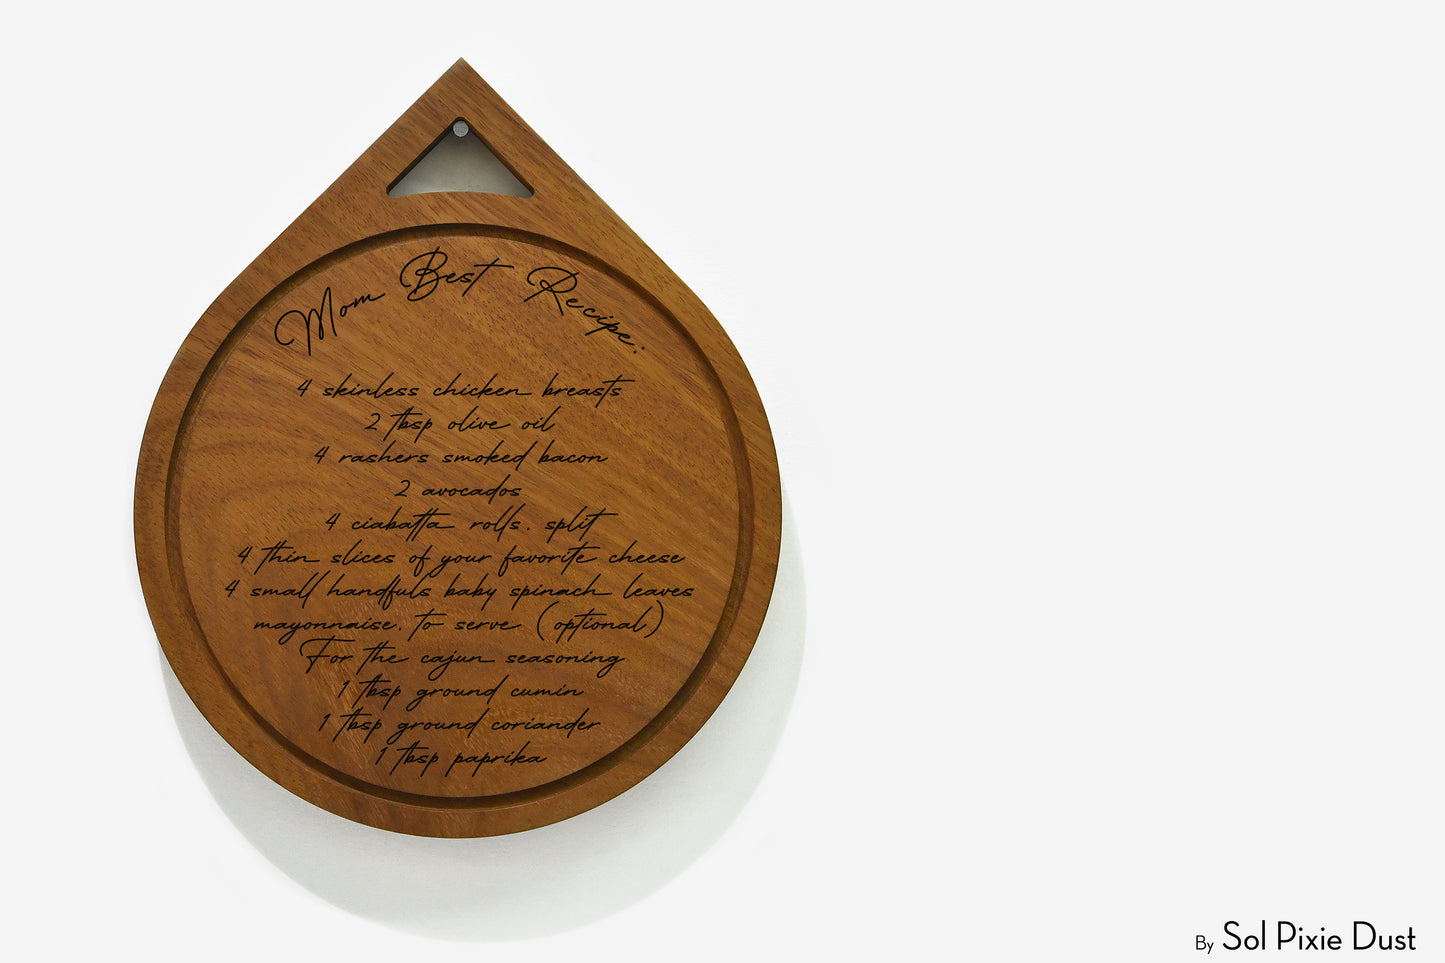 Mom Best Recipe:
4 skinless chicken breasts
2 tbsp olive oil
4 rashers smoked bacon
2 avocados
4 ciabatta rolls. split
4 thin slices of your favorite cheese
4 small handfuls baby spinach leaves
mayonnaise. to serve (optional)
For the cajun seasoning
1 tbsp ground cumin
1 tbsp ground coriander
1 tbsp paprika
By Sol Pixie Dust